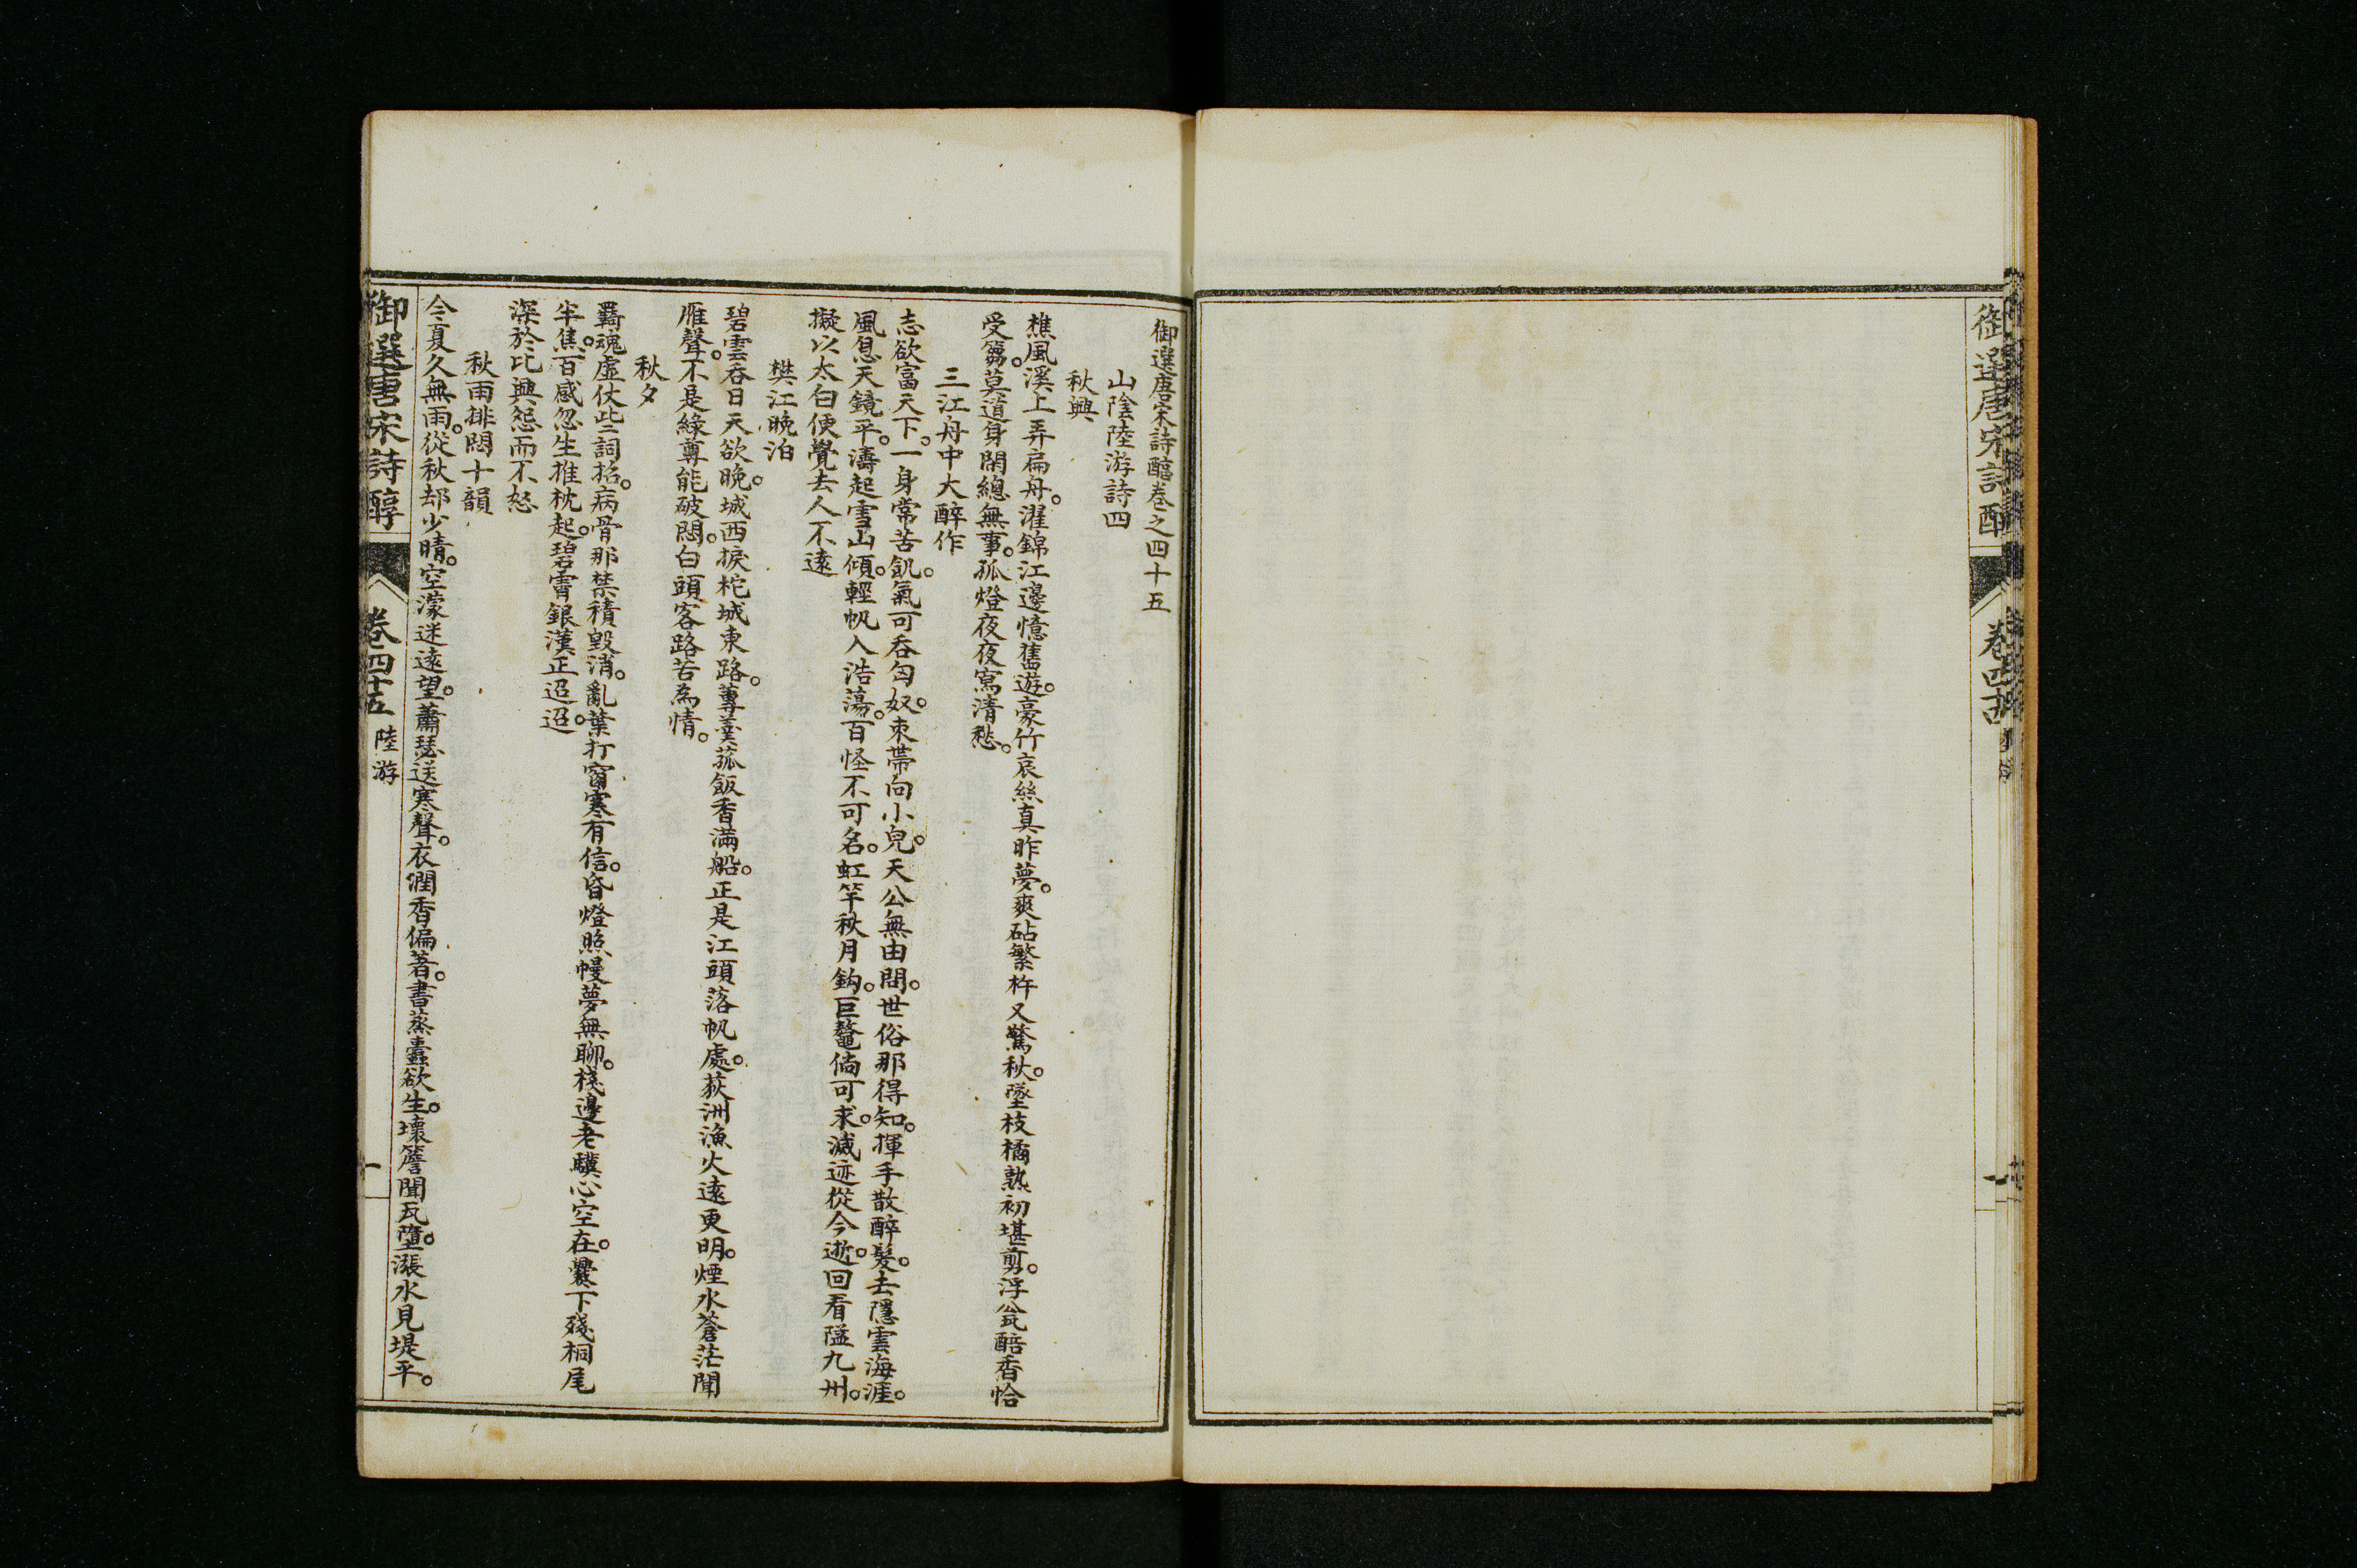 御選唐宋詩醇
卷四十四
御選唐宋詩醇卷之四十五
山陰陸游詩四
秋興
樵風溪上弄扁舟。濯錦江邊憶舊遊。豪竹哀絲真昨夢。爽砧繁杵又驚秋。墜枝橘熟初堪剪。浮瓮醅香恰
受篘。莫道身閑總無事。孤燈夜夜寫清愁。
三江舟中大醉作
志欲富天下。一身常苦飢。氣可吞匈奴。束帶向小兒。天公無由問。世俗那得知。揮手散醉髮。去隱雲海涯。
風息天鏡平。濤起雪山傾。輕帆入浩蕩。百怪不可名。虹竿秋月鈎。巨鼇倘可求。滅迹從今逝。回看隘九州。
擬以太白便覺去人不遠
樊江晚泊
碧雲吞日天欲晚。城西捩柁城東路。蓴羹菰飯香滿船。正是江頭落帆處。荻洲漁火遠更明。煙水蒼茫聞
雁聲。不是綠尊能破悶。白頭客路苦為情。
秋夕
羇魂虛仗些詞招。病骨那禁積毀消。亂葉打窗寒有信。昏燈照幔夢無聊。棧邊老驥心空在。爨下殘桐尾
半焦。百感忽生推枕起。碧霄銀漢正迢迢。
深於比興怨而不怒
秋雨排悶十韻
今夏久無雨。從秋却少晴。空濛迷遠望。蕭瑟送寒聲。衣潤香偏著。書蒸蠹欲生。壞簷聞瓦墮。漲水見堤平。
御選唐宋詩醇
卷四十五
陸游
一